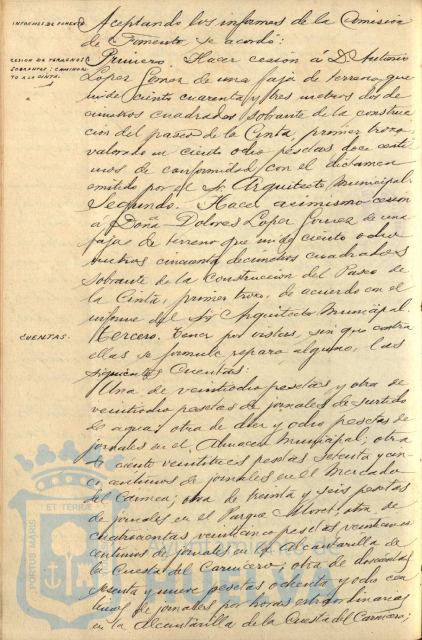 INFORMES DE FOMENTO
Aceptando los informes de la Comisión
de Fomento se acordó:
CESION DE TERRENOS
SOBRANTES: CAMINO
TO A LA CINTA.
Primero. Hacer cesion á D. Antonio
Lopez Gomez de una faja de terreno que
mide ciento cuarenta y tres metros dos de-
cimetros cuadrados sobrante de la construc-
ción del paseo de la Cinta, primer trozo,
valorado en ciento ocho pesetas doce centi-
mos de conformidad con el dictamen
emitido por el Sr. Arquitecto Municipal.
Segundo. Hacer asimismo cesion
á Doña Dolores Lopez Gomez de una
faja de terreno que mide ciento ocho
metros cincuenta decimetros cuadrados
sobrante de la construccion del Paseo de
la Cinta, primer trozo, de acuerdo con el
informe del Sr. Arquitecto Municipal.
CUENTAS.
Tercero. Tener por vistas, sin que contra
ellas se formule reparo alguno, las
siguientes Cuentas:
Una de veintiocho pesetas y otra de
veintiocho pesetas de jornales de surtido
de aguas; otra de diez y ocho pesetas de
jornales en el Almacen Municipal; otra
de ciento veintitres pesetas setenta y cin-
co centimos de jornales en el Mercado
del Carmen; otra de treinta y seis pesetas
de jornales en el Parque Moret; otra de
cuatrocientas veinticinco pesetas veinticinco
centimos de jornales en la alcantarilla de
la Cuesta del Carnicero; otra de doscientas
sesenta y nueve pesetas ochenta y ocho cen-
timos de jornales por horas extraordinarias
en la alcantarilla de la Cuesta del Carnicero;
PORTUS MARIS ET TERRÆ